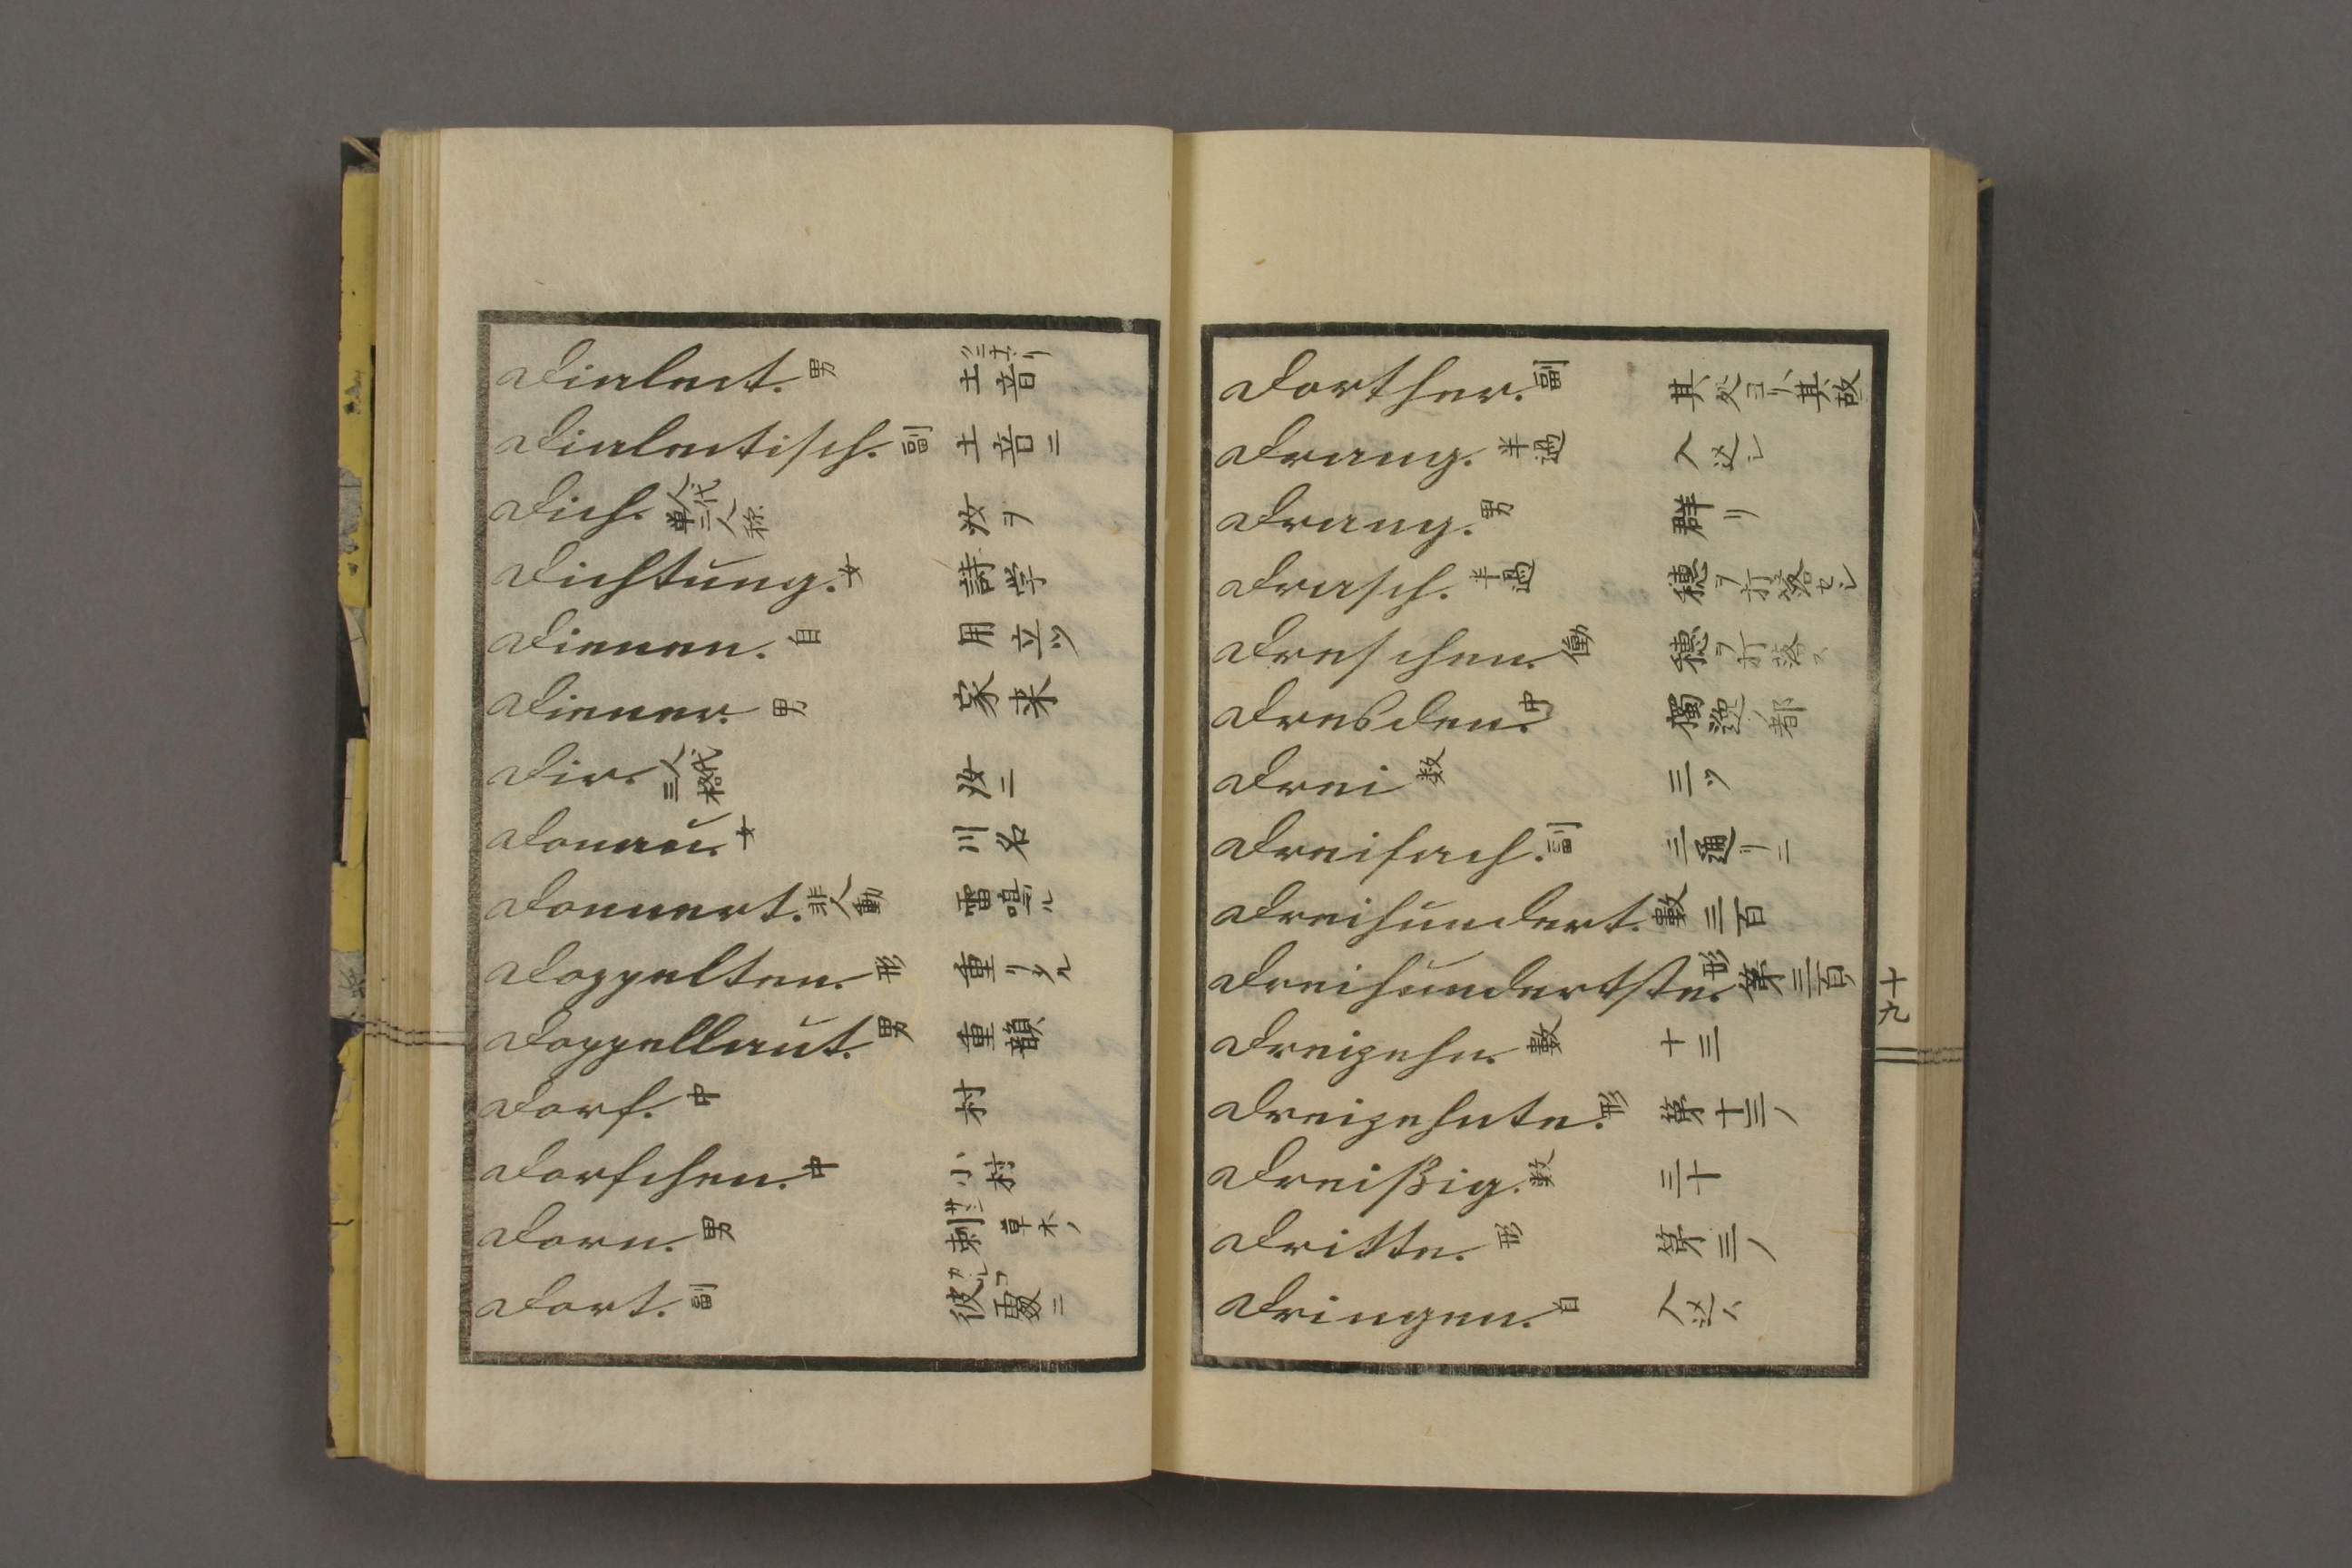 Dialect. 男 土音 クニナマリ
Dialectisch. 副 土音ニ
Dich. 人代単二人称 汝ヲ
Dichtung. 女 詩学
Dienen. 自 用立ツ
Diener. 男 家来
Dir. 人代三格 汝ニ
Donau. 女 川名
Donnert. 非人動 雷鳴ル
Doppelten. 形 重リタル
Doppellaut. 男 重韻
Dorf. 中 村
Dorfchen. 中 小村
Dorn. 男 刺 草木ノ
Dort. 副 彼處ニ
Dorther. 副 其処ヨリ 其故
Drang. 半過 人込シ
Drang. 男 群リ
Drasch. 半過 穗ヲ打落セシ
Dreschen. 働 穗ヲ打落ス
Dresden. 中 獨逸ノ都
Drei 数 三ツ
Dreifach. 副 三通リニ
Dreihundert. 數 三百
Dreihundertste. 形 第三百ノ
Dreizehn. 數 十三
Dreizehnte. 形 第十三ノ
Dreißig. 数 三十
Dritte. 形 第三ノ
Dringen. 自 人込ム
十九